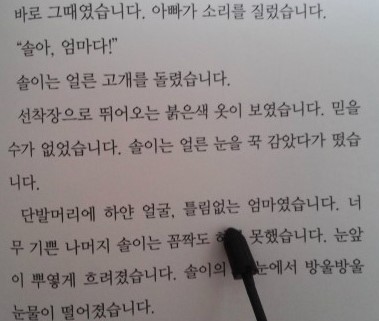 바로 그때였습니다. 아빠가 소리를 질렀습니다.
“솔아, 엄마다!”
솔이는 얼른 고개를 돌렸습니다.
선착장으로 뛰어오는 붉은색 옷이 보였습니다. 믿을
수가 없었습니다. 솔이는 얼른 눈을 꾹 감았다가 떴습
니다.
단발머리에 하얀 얼굴, 틀림없는 엄마였습니다. 너
무 기쁜 나머지 솔이는 꼼짝도 못했습니다. 눈앞
이 뿌옇게 흐려졌습니다. 솔이의 눈에서 방울방울
눈물이 떨어졌습니다.